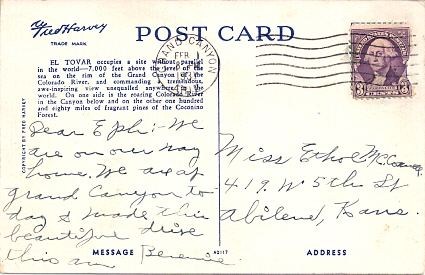 Fred Harvey
TRADE MARK
POST CARD
GRAND CANYON
FEB
EL TOVAR occupies a site without parallel
in the world—7,000 feet above the level of the
sea on the rim of the Grand Canyon of the
Colorado River, and commanding a tremendous,
awe-inspiring view unequalled anywhere in the
world. On one side is the roaring Colorado River
in the Canyon below and on the other one hundred
and eighty miles of fragrant pines of the Coconino
Forest.
COPYRIGHT BY FRED HARVEY
3 3
Dear Eph:- We
are on our way
home. We are at
grand Canyon to-
day & made this
beautiful drive
this am Bernie
Miss Ethol
419 W 5th St
Abilene, Kans.
MESSAGE
A2117
ADDRESS